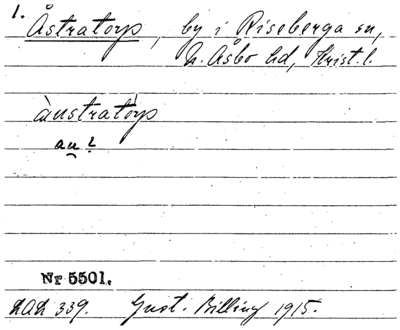 1.
Åstratorp, by i Riseberga sn,
N. Åsbo hd, Krist. l.
àustratòrp
au ?
Nr 5501.
LAL 339. Gust. Billing 1915.